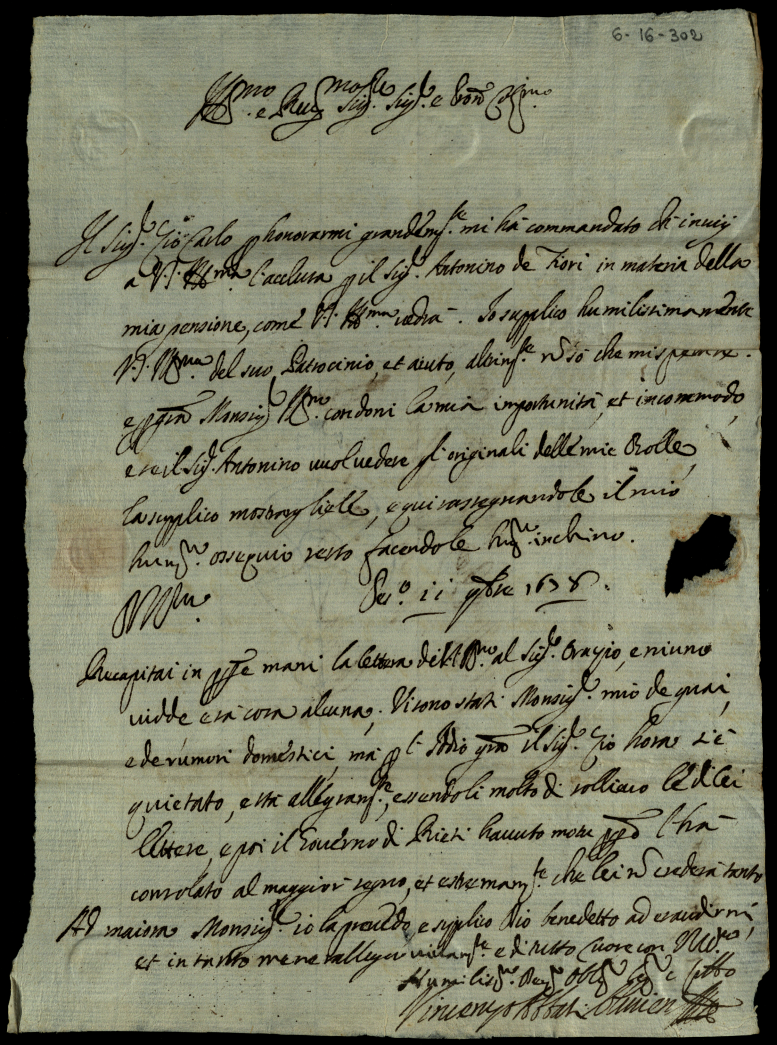 6-16-302
Ill.mo e Rev.mo Sig.r Sig.r e Pron Col.mo
Il Sig.r Gio Carlo p honorarmi grandem.te mi hà commandato ch'invij
a V.S. Ill.ma l'acclusa p il Sig.r Antonino de Fiori in materia della
mia pensione, come V.S. Ill.ma vedrà. Io supplico humilissimamente
V.S. Ill.ma del suo Patrocinio, et aiuto, altrim.te nō sò che mi sperare.
e p grā Monsig.r Ill.mo condoni la mia importunità, et incommodo,
e se il Sig.r Antonino vuol vedere gl'originali delle mie Bolle,
la supplico mostrargliele, e qui rassegnandole il mio
humil.mo ossequio resto facendole hum.mo inchino.
Pes.o 11 9bre 1678.
Recapitai in pp.e mani la lettera di V.S. Ill.ma al Sig.r Orazio, e niuno
vidde e sà cosa alcuna. Vi sono stati Monsig.r mio de guai,
e de rumori domestici, mà p l'Iddio grā il Sig.r Gio hora s'è
quietato, e stà allegram.te, essendoli molto di sollievo le di lei
lettere, e poi il Governo di Rieti havuto motu pp.o l'hà
consolato al maggior segno, et estremam.te che lei nō crederà tanto
Ad maiora Monsig.r io la prevedo e supplico Dio benedetto ad esaudirmi,
et in tanto me ne rallegro vivam.te e di tutto cuore con V.S. Ill.ma
Humiliss.mo Dev.mo Obl.mo Ser.
Vincenzo Abbati Olivieri